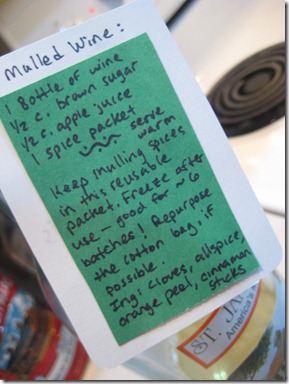 Mulled Wine:
1 Bottle of wine
1/2 c. brown sugar
1/2 c. apple juice
1 spice packet
serve warm
Keep mulling spices
in this reusable
packet. Freeze after
use - good for ~6
batches! Repurpose
the cotton bag if
possible.
Ing: cloves, allspice,
orange peel, cinnamon
sticks
ST. JA
America's